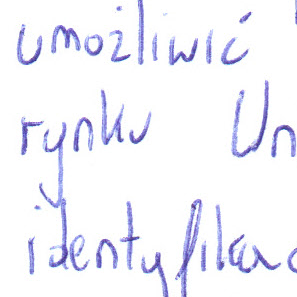 umożliwić
rynku Un
identyfika